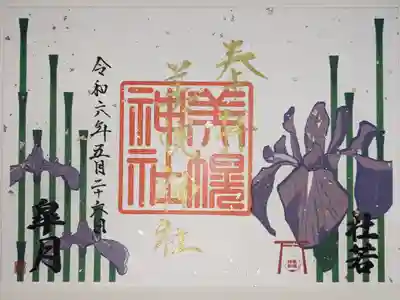 奉拝
美幌神社
美幌
神社
杜若
令和六年五月二十六日
皐月